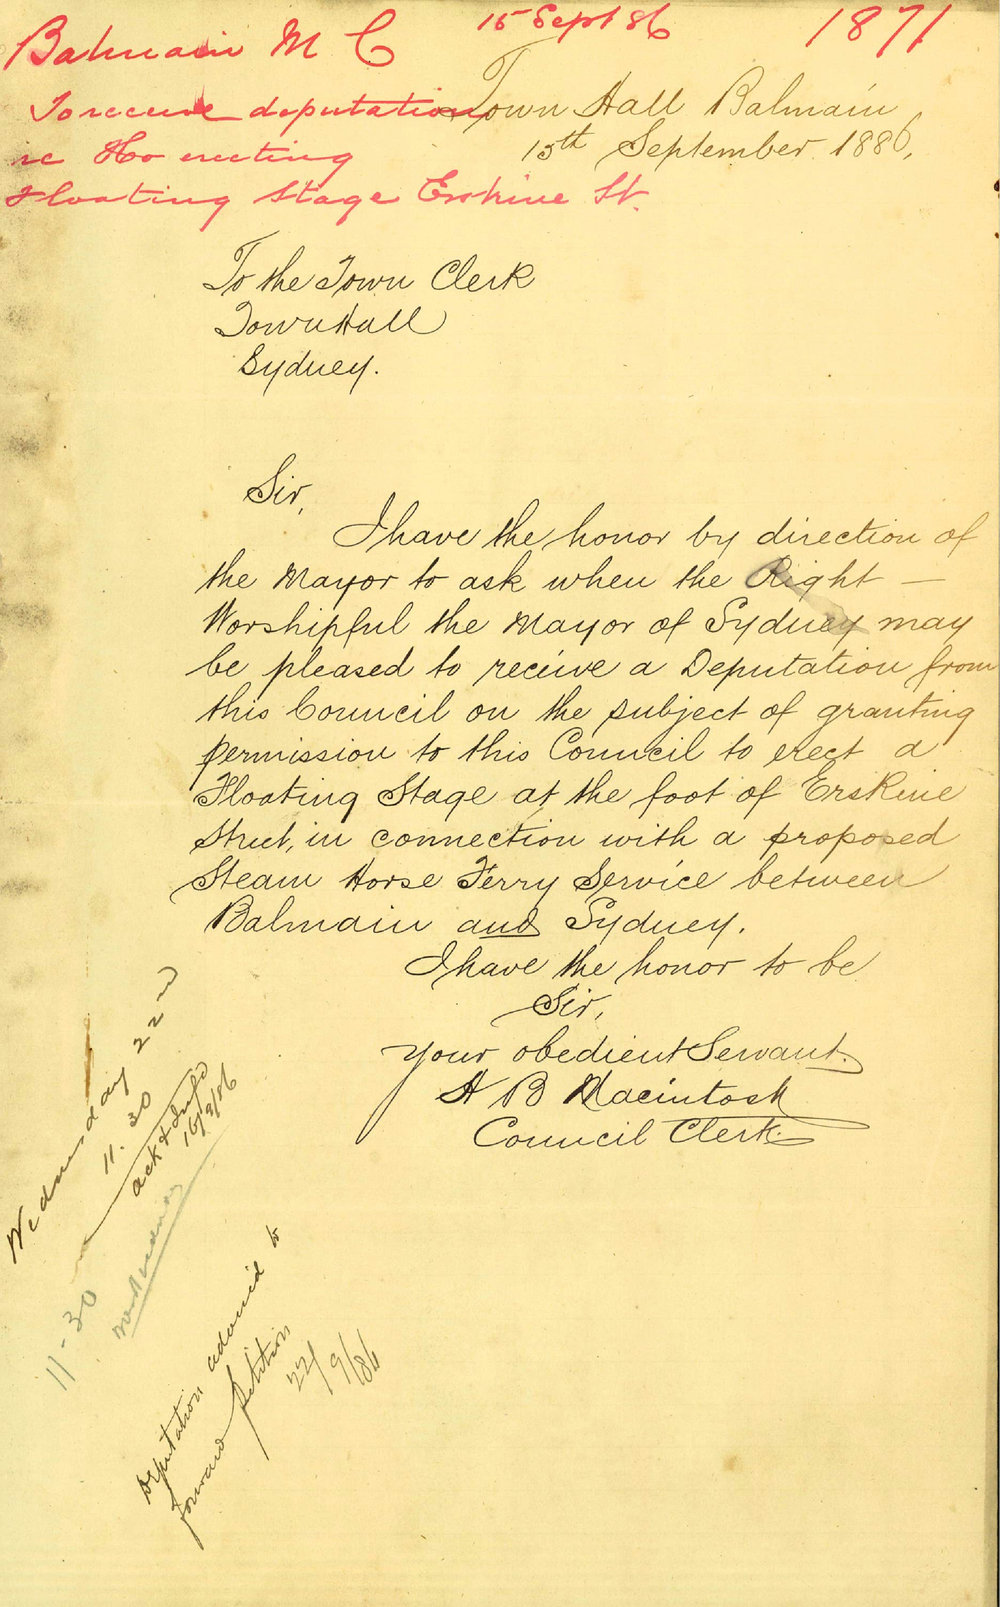 Balmain M C 15 Sept 86 1871
To receive deputation
re Ho erecting
Floating Stage Erskine St.
Town Hall Balmain
15th September 1886.
To the Town Clerk
Town Hall
Sydney.
Sir,
I have the honor by direction of
the Mayor to ask when the Right —
Worshipful the Mayor of Sydney may
be pleased to receive a Deputation from
this Council on the subject of granting
permission to this Council to erect a
Floating Stage at the foot of Erskine
Street, in connection with a proposed
Steam Horse Ferry Service between
Balmain and Sydney.
I have the honor to be
Sir,
Your obedient Servant.
H B Macintosh
Council Clerk.
Wednesday 22nd
11.30
ack & info
16/9/86
11-30
Deputation advised to
forward petition
22/9/86